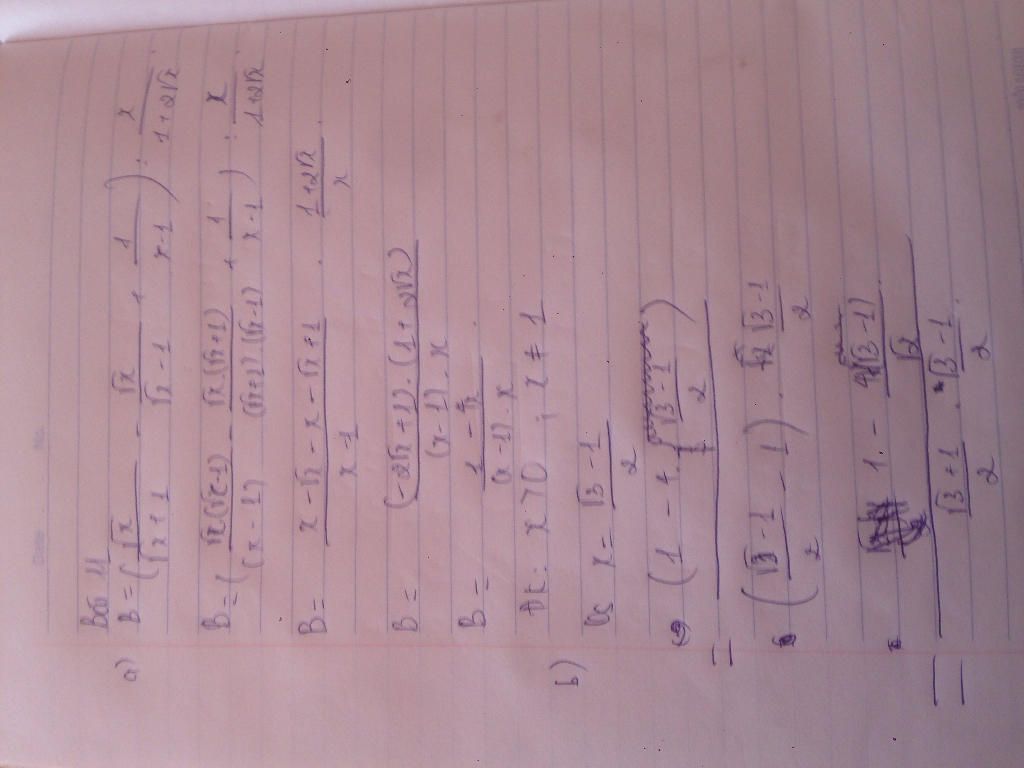 Date No.
Bài 11
a) B = ( √x / (√x + 1) - √x / (√x - 1) + 1 / (x - 1) ) : x / (1 + 2√x)
B = ( √x(√x - 1) / (x - 1) - √x.(√x + 1) / (√x + 1).(√x - 1) + 1 / (x - 1) ) : x / (1 + 2√x)
B = (x - √x - x - √x + 1) / (x - 1) . (1 + 2√x) / x
B = (-2√x + 1).(1 + 2√x) / (x - 1).x
B = (1 - 4x) / (x - 1).x
ĐK: x > 0 ; x ≠ 1
b) x = (√3 - 1) / 2
( 1 - 4. (√3 - 1) / 2 )
( (√3 - 1) / 2 - 1 ) . (√3 - 1) / 2
= 1 - (√3 - 1) / 2
= (√3 + 1) / 2 . (√3 - 1) / 2